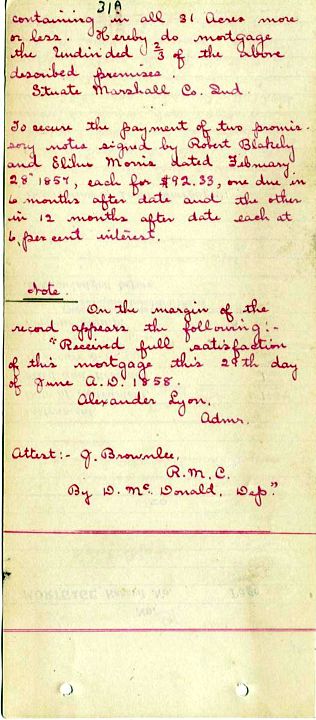 31A
containing in all 31 Acres more
or less. Hereby do mortgage
the Undivided 2/3 of the above
described premises.
Situate Marshall Co. Ind.
To secure the payment of two promis-
sory notes signed by Robert Blakely
and Elihu Morris dated February
28" 1857, each for $92.33, one due in
6 months after date and the other
in 12 months after date each at
6 per cent interest.
Note.
On the margin of the
record appears the following:-
"Received full satisfaction
of this mortgage this 29th day
of June A.D. 1858.
Alexander Lyon,
Admr.
Attest:- J. Brownlee,
R.M.C.
By D. Mc Donald, Dep."